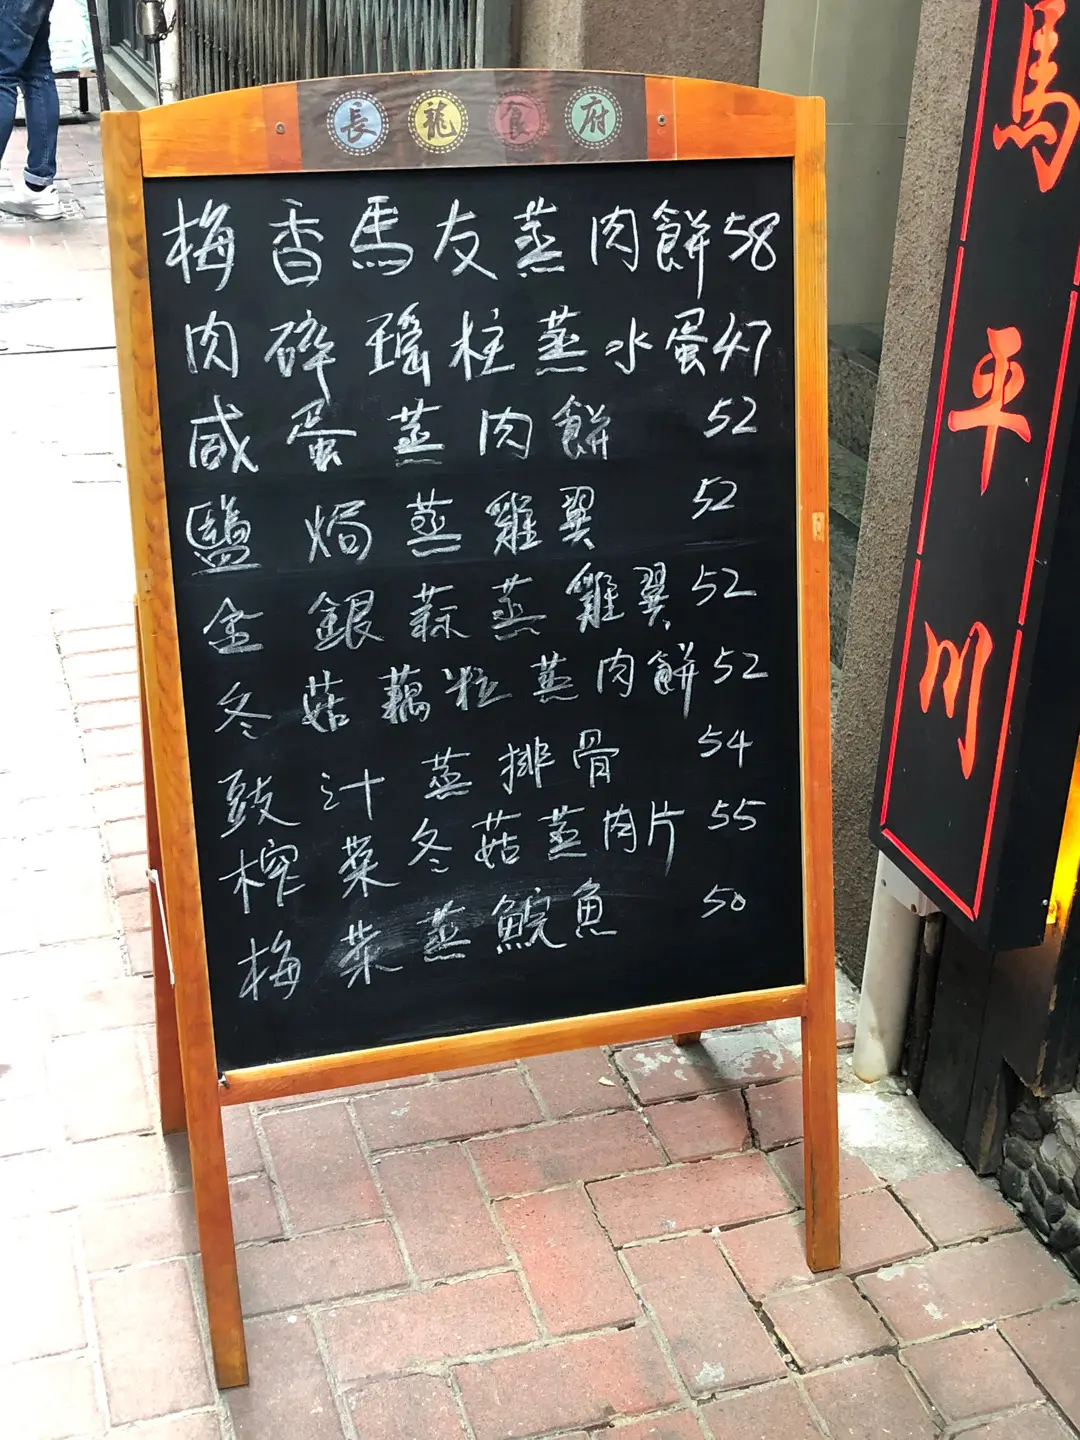 長龍食府
梅香馬友蒸肉餅58
肉碎瑤柱蒸水蛋47
咸蛋蒸肉餅 52
鹽焗蒸雞翼 52
金銀蒜蒸雞翼 52
冬菇藕粒蒸肉餅 52
豉汁蒸排骨 54
榨菜冬菇蒸肉片 55
梅菜蒸鯇魚 50
馬平川